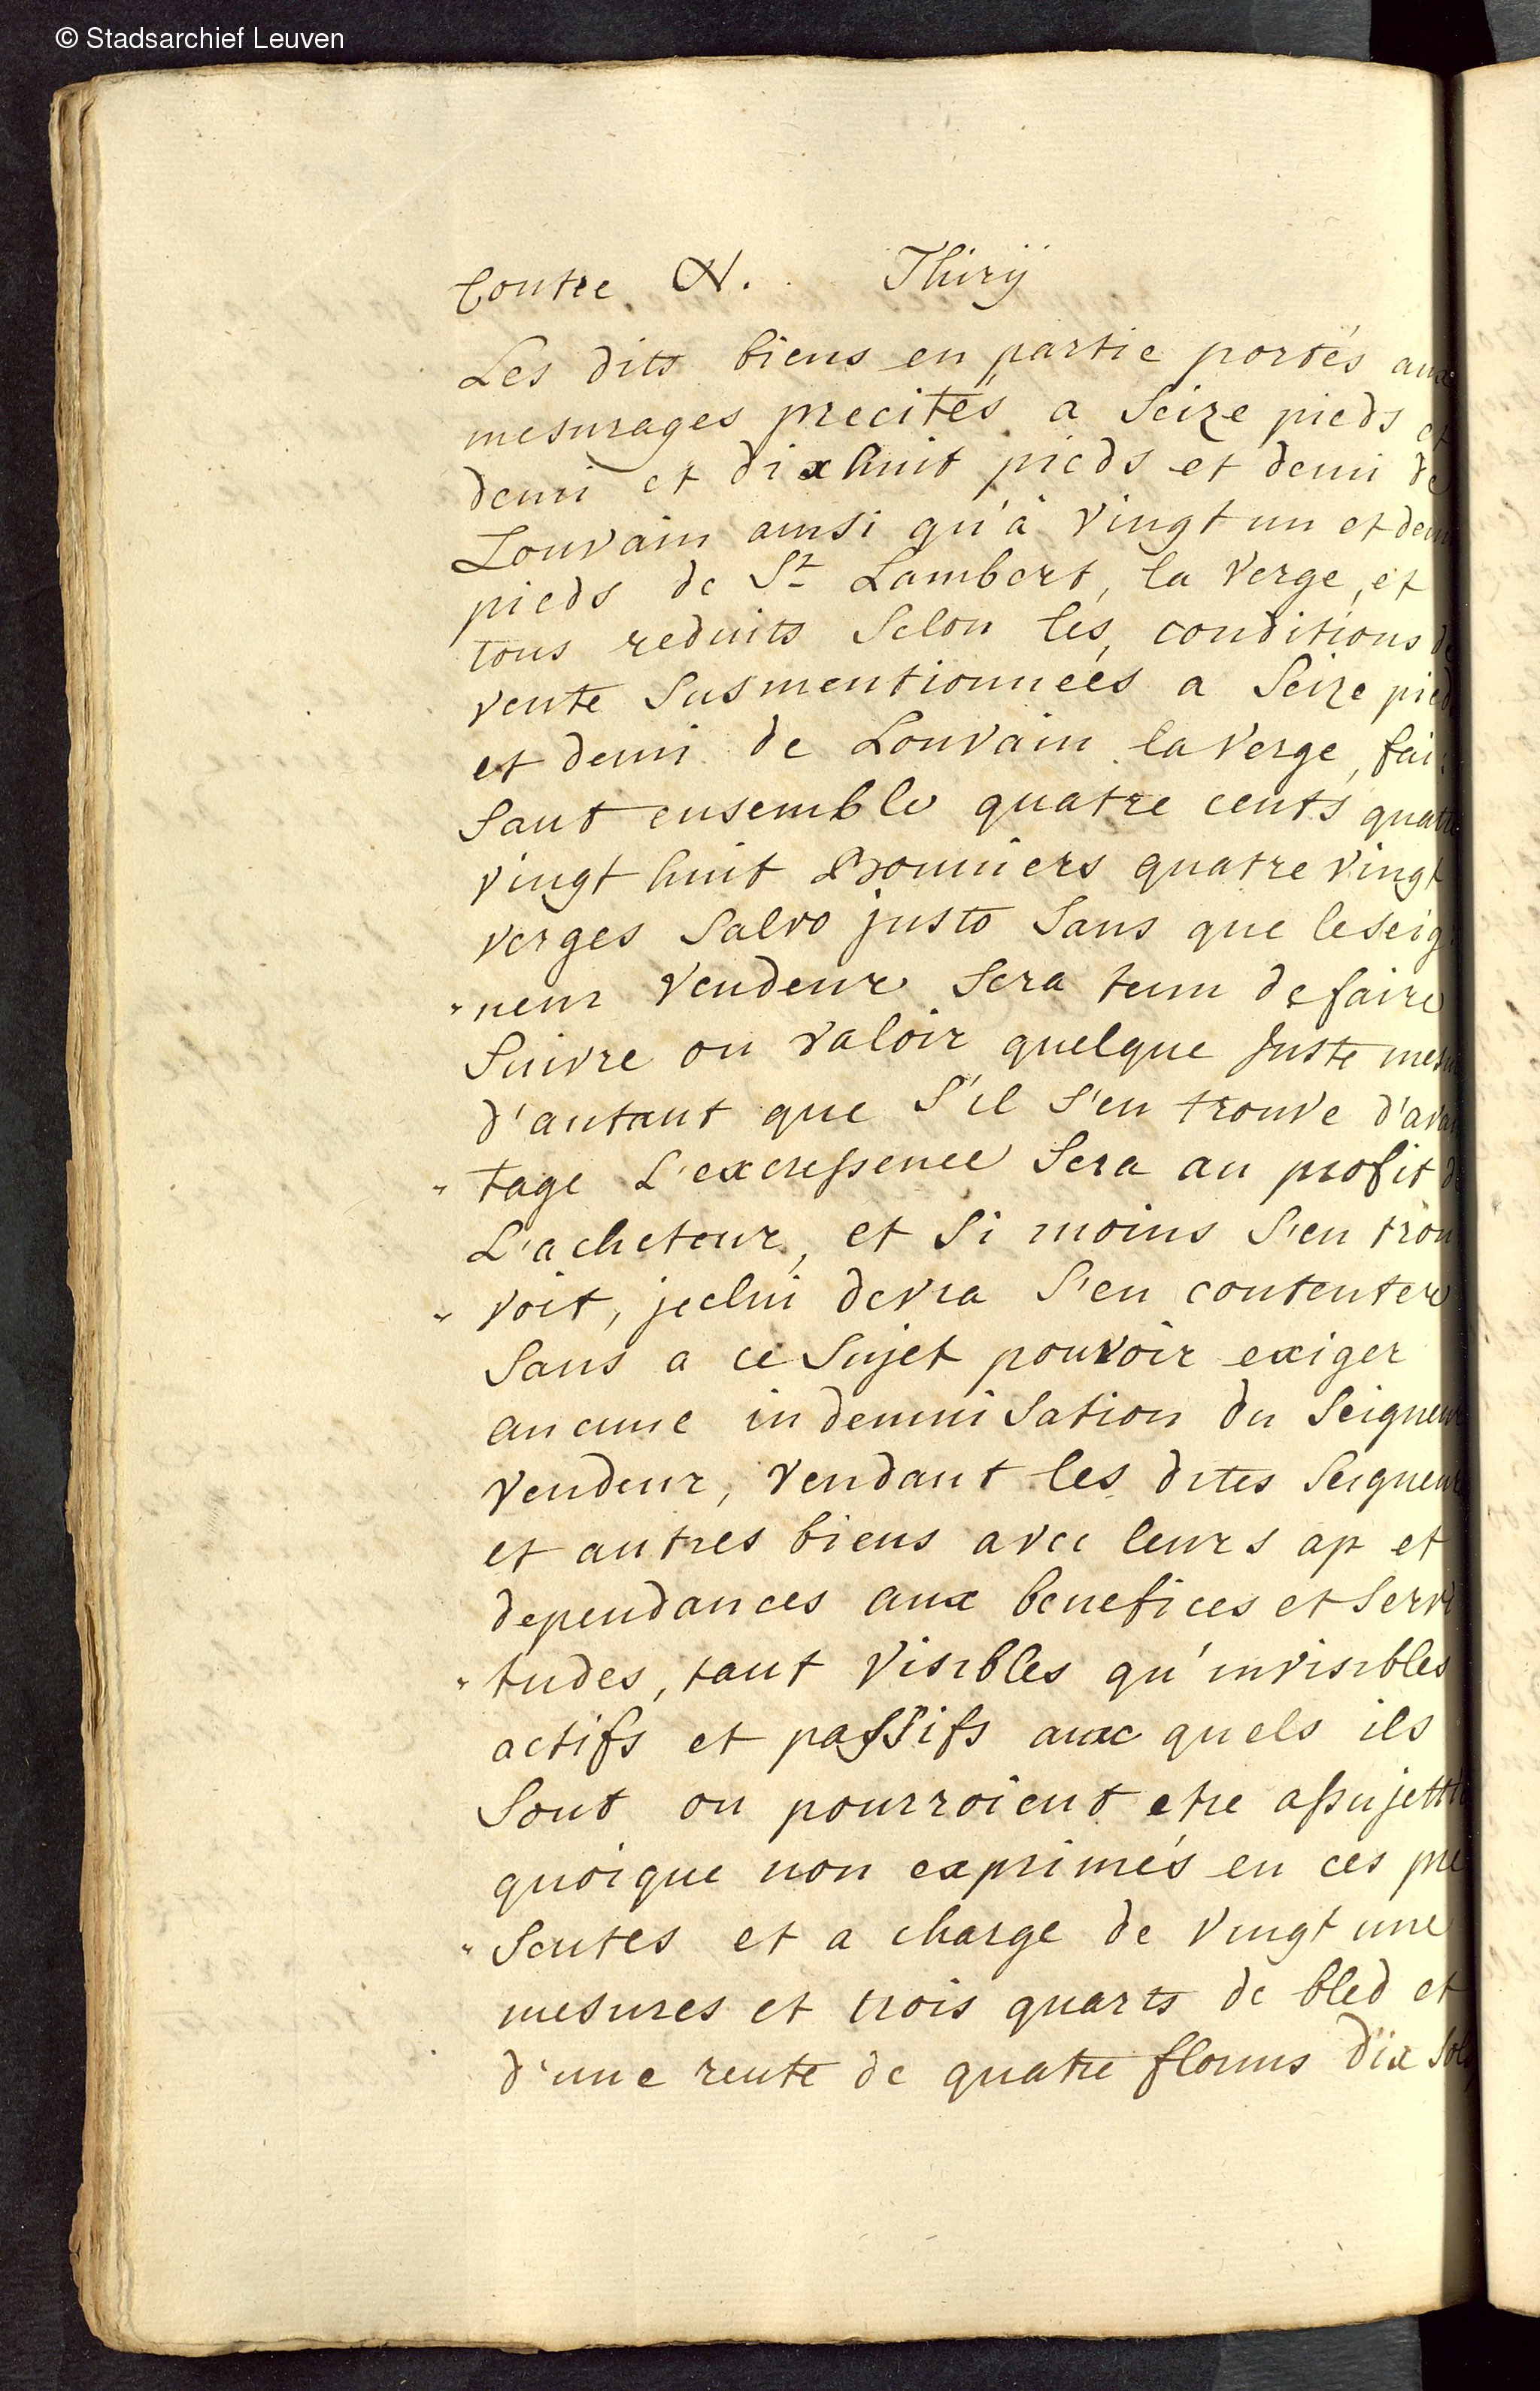 © Stadsarchief Leuven
Contre N. Thirij
Les dits biens en partie portés aux
mesurages precités a Seize pieds et
demi et dixhuit pieds et demi de
Louvain ainsi qu'à vingt un et demi
pieds de St Lambert, la verge, et
tous reduits Selon les conditions de
vente Susmentionneés a Seize pieds
et demi de Louvain la verge, fai:
Sant ensemble quatre cents quatre
vingt huit Bonniers quatre vingt
verges Salvo justo Sans que leseig:
"neur vendeur Sera tenu de faire
Suivre ou valoir quelque Juste mesure
d'autant que S'il S'en trouve d'avan
"tage L'excressence Sera au profit de
L'acheteur, et Si moins S'en trou
"voit, jcelui devra S'en contenter
Sans a ce Sujet pouvoir exiger
aucune indemniSation du Seigneur
vendeur, vendant les dites Seigneur
et autres biens avec leurs ap et
dependances aux benefices et Servi
"tudes, tant visibles qu'invisibles
actifs et passifs aux quels ils
Sont ou pourroient etre assujettis
quoique non exprimés en ces pre
"Sentes et a charge de vingt une
mesures et trois quarts de bled et
d'une rente de quatre florins dix Sols